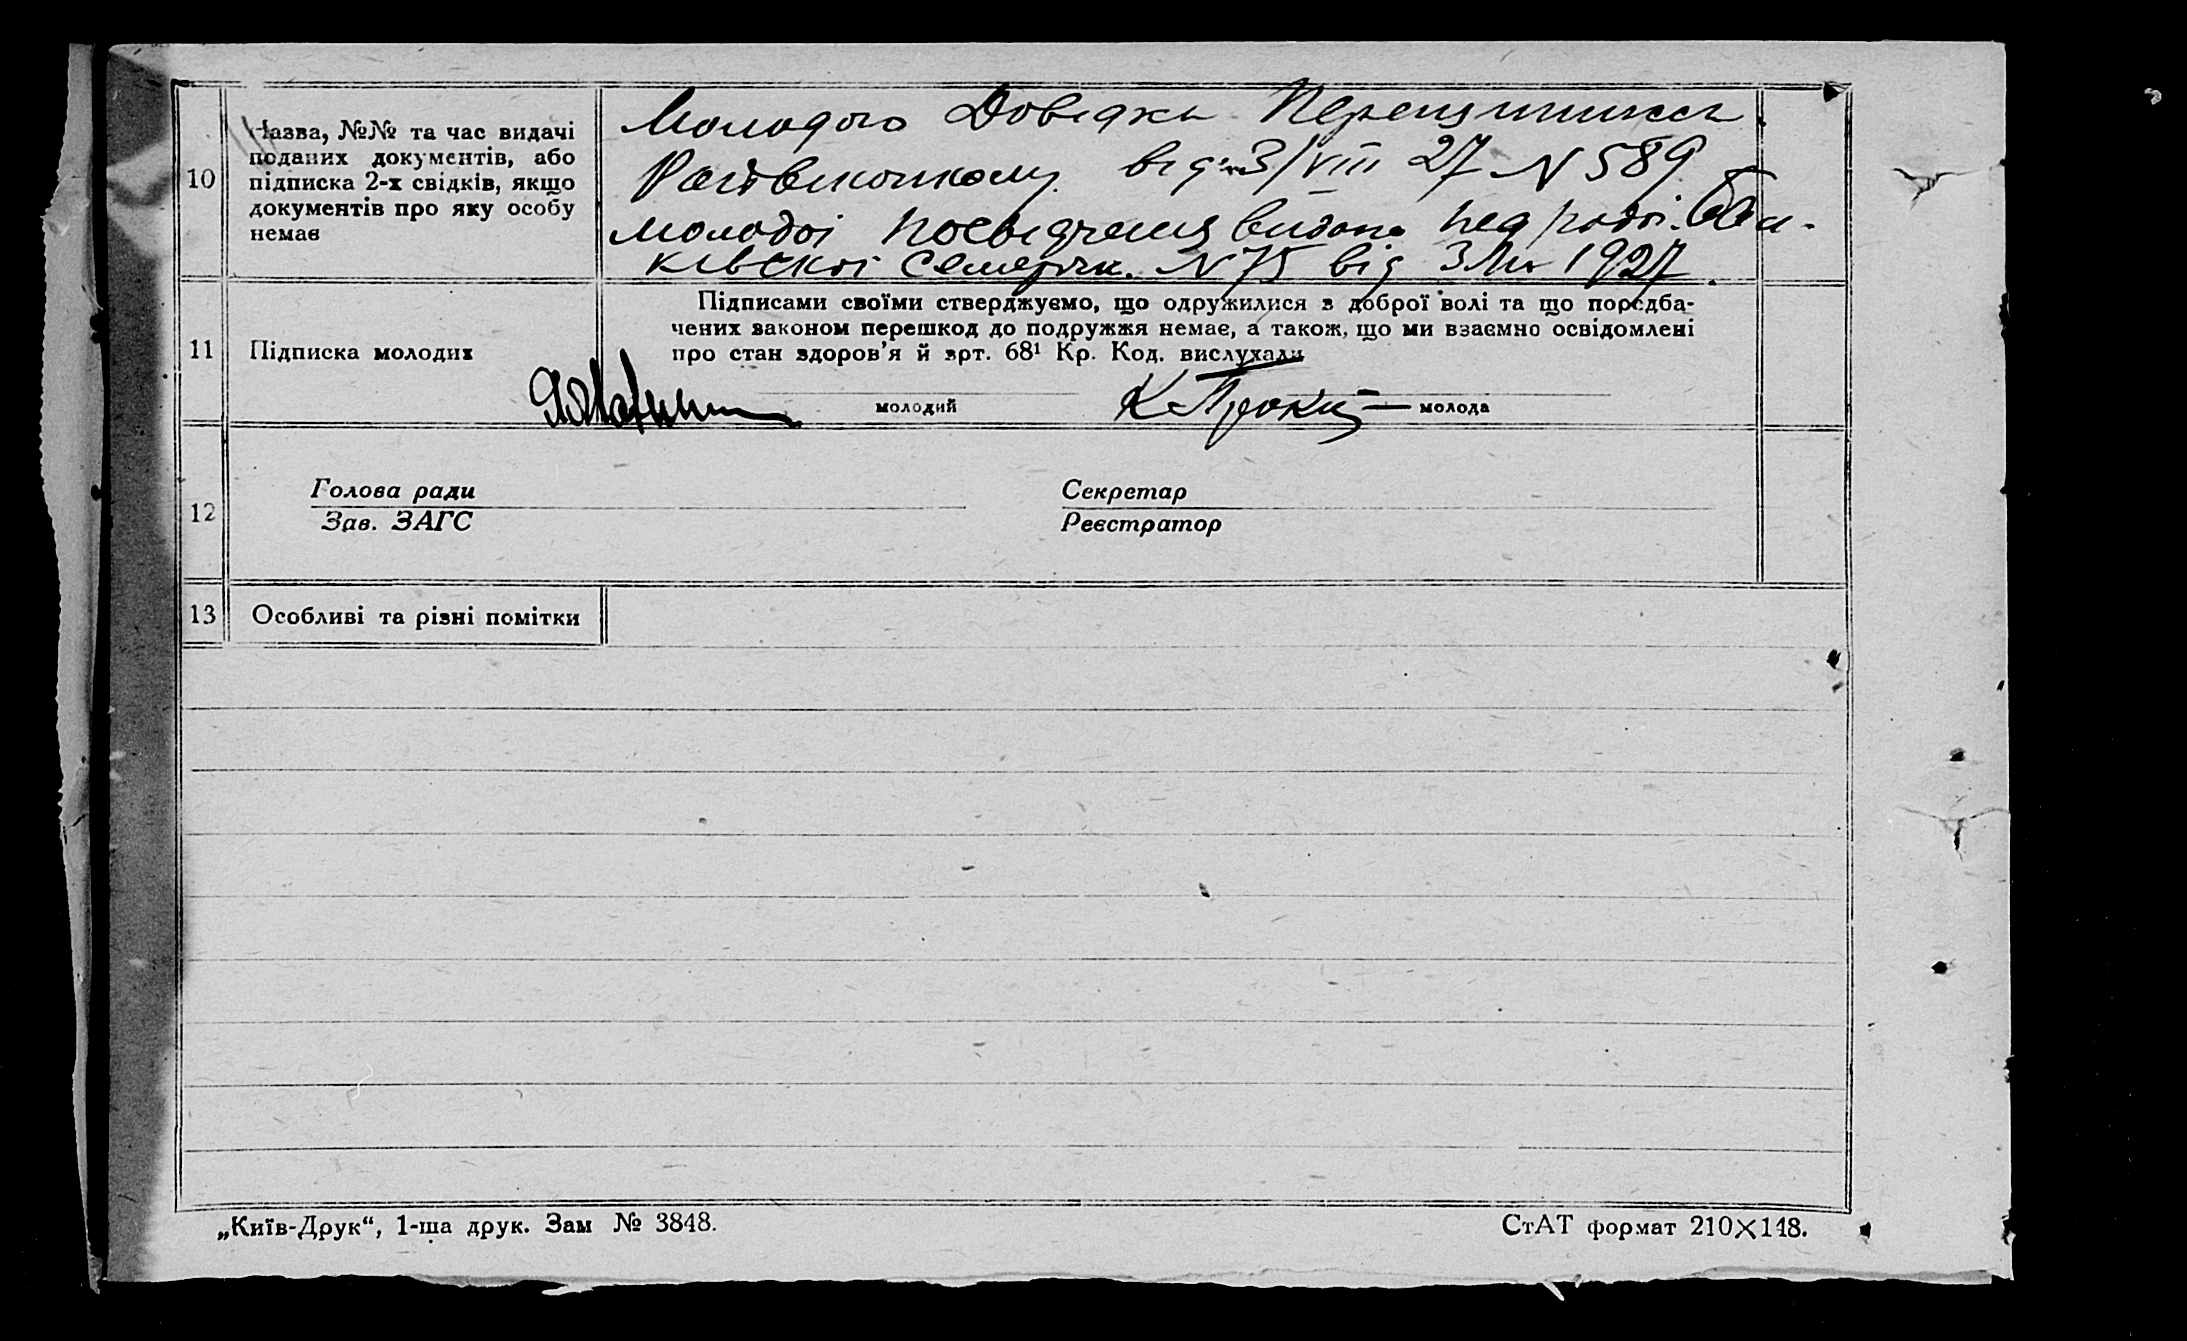 10
Назва, №№ та час видачі
поданих документів, або
підписка 2-х свідків, якщо
документів про яку особу
немає
Молодого Довідка
від 3/VIII 27 N 589
молодої посвідчення видано пед
N 75 від 1927
11
Підписка молодих
Підписами своїми стверджуємо, що одружилися з доброї волі та що передба-
чених законом перешкод до подружжя немає, а також, що ми взаємно освідомлені
про стан здоров'я й арт. 68¹ Кр. Код. вислухали
молодий
молода
12
Голова ради
Зав. ЗАГС
Секретар
Реєстратор
13
Особливі та різні помітки
„Київ-Друк“, 1-ша друк. Зам № 3848.
СтАТ формат 210×148.